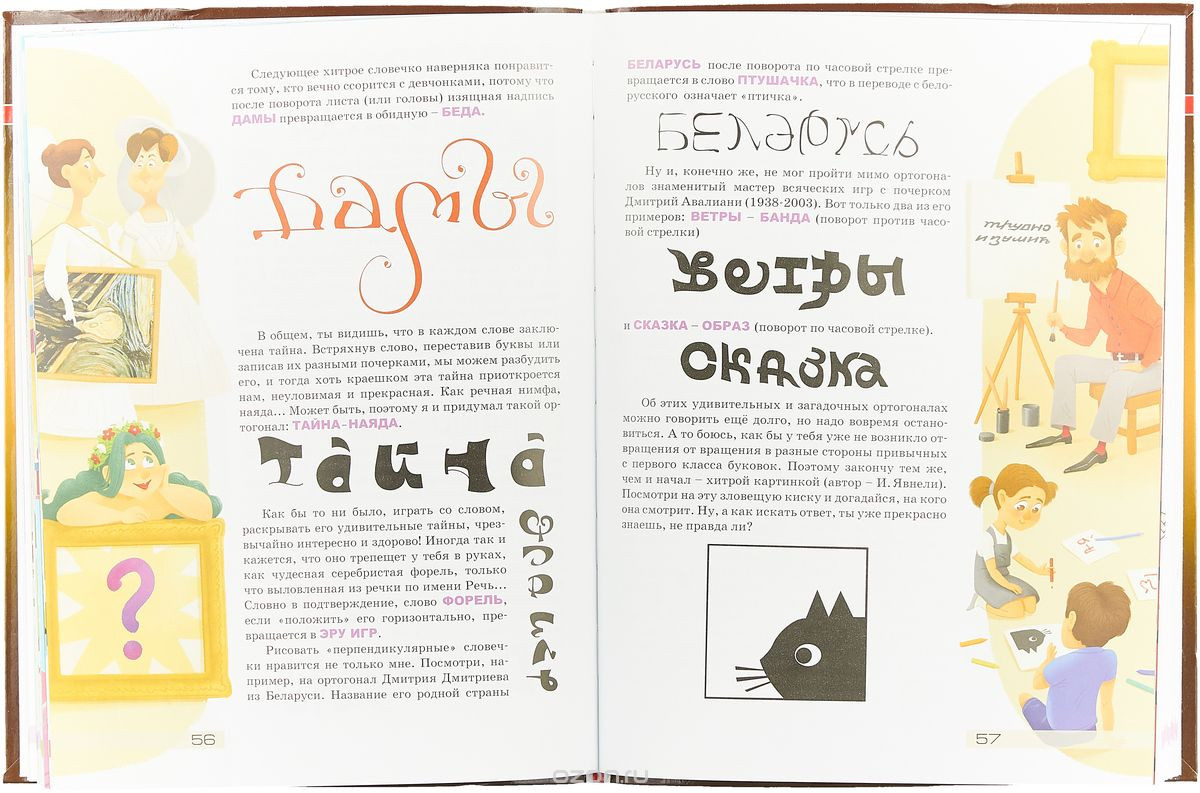 Следующее хитрое словечко наверняка понравит-
ся тому, кто вечно ссорится с девчонками, потому что
после поворота листа (или головы) изящная надпись
ДАМЫ превращается в обидную – БЕДА.
дамы
В общем, ты видишь, что в каждом слове заклю-
чена тайна. Встряхнув слово, переставив буквы или
записав их разными почерками, мы можем разбудить
его, и тогда хоть краешком эта тайна приоткроется
нам, неуловимая и прекрасная. Как речная нимфа,
наяда... Может быть, поэтому я и придумал такой ор-
тогонал: ТАЙНА-НАЯДА.
тайна
Как бы то ни было, играть со словом,
раскрывать его удивительные тайны, чрез-
вычайно интересно и здорово! Иногда так и
кажется, что оно трепещет у тебя в руках,
как чудесная серебристая форель, только
что выловленная из речки по имени Речь...
Словно в подтверждение, слово ФОРЕЛЬ,
если «положить» его горизонтально, пре-
вращается в ЭРУ ИГР.
Рисовать «перпендикулярные» словеч-
ки нравится не только мне. Посмотри, на-
пример, на ортогонал Дмитрия Дмитриева
из Беларуси. Название его родной страны
форель
56
БЕЛАРУСЬ после поворота по часовой стрелке пре-
вращается в слово ПТУШАЧКА, что в переводе с бело-
русского означает «птичка».
БЕЛАРУСЬ
Ну и, конечно же, не мог пройти мимо ортогона-
лов знаменитый мастер всяческих игр с почерком
Дмитрий Авалиани (1938-2003). Вот только два из его
примеров: ВЕТРЫ – БАНДА (поворот против часо-
вой стрелки)
ветры
и СКАЗКА – ОБРАЗ (поворот по часовой стрелке).
сказка
Об этих удивительных и загадочных ортогоналах
можно говорить ещё долго, но надо вовремя остано-
виться. А то боюсь, как бы у тебя уже не возникло от-
вращения от вращения в разные стороны привычных
с первого класса буковок. Поэтому закончу тем же,
чем и начал – хитрой картинкой (автор – И. Явнели).
Посмотри на эту зловещую киску и догадайся, на кого
она смотрит. Ну, а как искать ответ, ты уже прекрасно
знаешь, не правда ли?
трудно
?
57
ozon.ru